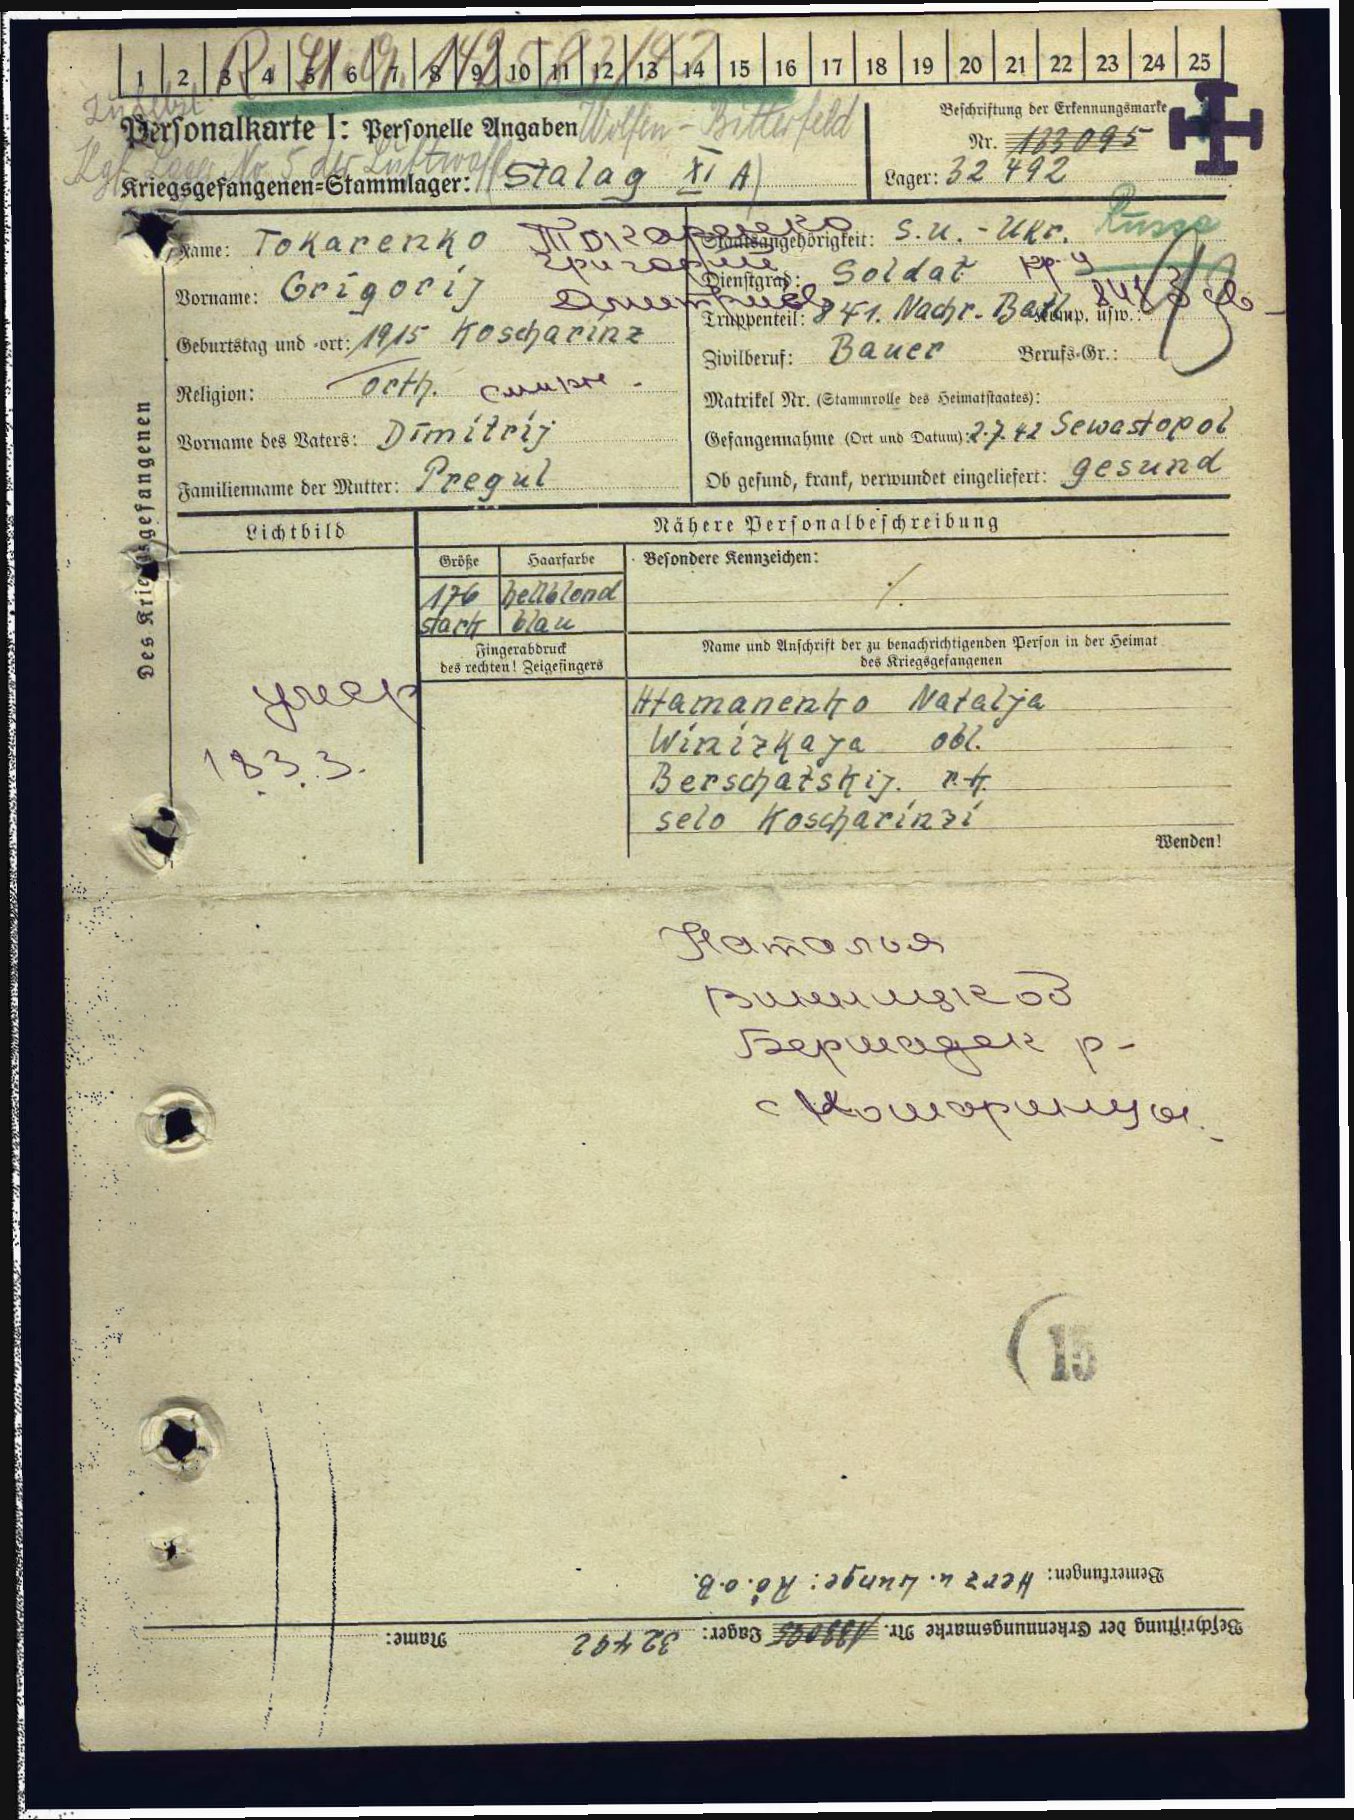 1 2 3 4 5 6 7 8 9 10 11 12 13 14 15 16 17 18 19 20 21 22 23 24 25
Personalkarte I: Personelle Angaben
Wolfen - Bitterfeld
Kgf. Lager Nr. 5 der Luftwaffe
Kriegsgefangenen-Stammlager: (Stalag XI A)
Beschriftung der Erkennungsmarke
Nr. 133095
Lager: 32 492
Des Kriegsgefangenen
Name: Tokarenko Токаренко
Vorname: Grigorij Григорий
Дмитриев
Geburtstag und -ort: 1915 Koscharinz
Religion: orth.
Vorname des Vaters: Dimitrij
Familienname der Mutter: Pregul
Staatsangehörigkeit: S.U. - Ukr. Russe
Dienstgrad: Soldat
Truppenteil: 841. Nachr. Batl. Komp. usw.:
Zivilberuf: Bauer Berufs-Gr.:
Matrikel Nr. (Stammrolle des Heimatstaates):
Gefangennahme (Ort und Datum): 2.7.42 Sewastopol
Ob gesund, krank, verwundet eingeliefert: gesund
Lichtbild
Nähere Personalbeschreibung
Größe Haarfarbe Besondere Kennzeichen:
176 hellblond ./.
stark blau
Fingerabdruck
des rechten! Zeigefingers
Name und Anschrift der zu benachrichtigenden Person in der Heimat
des Kriegsgefangenen
Atamanenko Natalja
Winizkaja obl.
Berschatskij. r-k.
selo Koscharinzi
Wenden!
умер
183.3.
Наталия
Винницкоб
Бершадск р-
с Кошаринцы.
15
Bemerkungen: Herz u. Lunge: Rö. o. B.
Beschriftung der Erkennungsmarke Nr. 133095 Lager: 32492 Name: